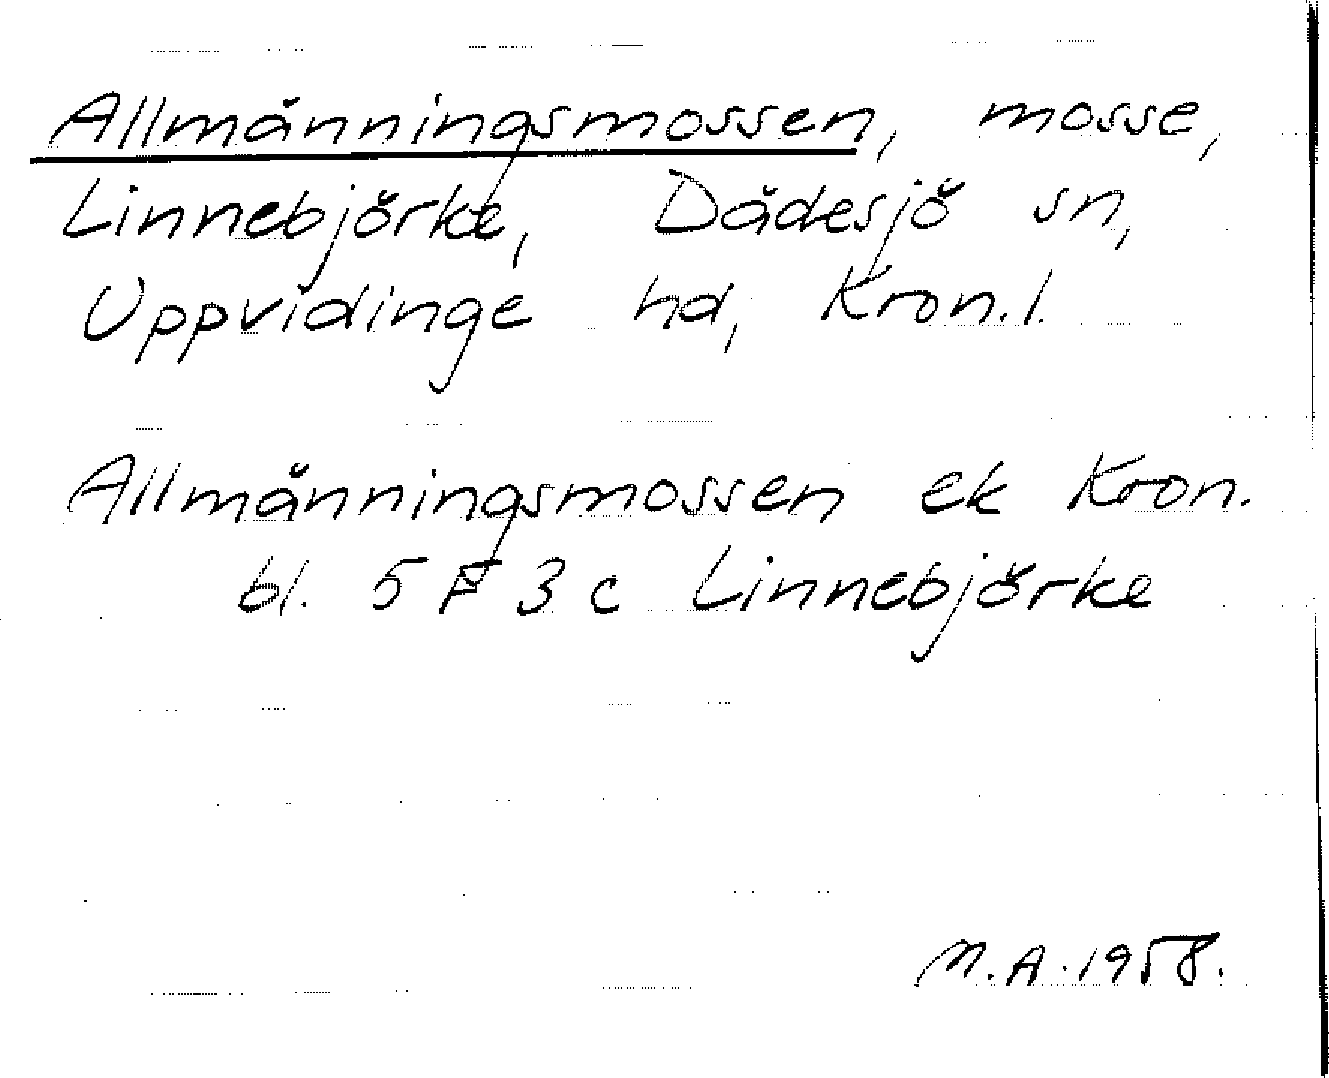 Allmänningsmossen, mosse,
Linnebjörke, Dädesjö sn,
Uppvidinge hd, Kron.l.
Allmänningsmossen ek Kron.
bl. 5 F 3 c Linnebjörke
M.A.1958.